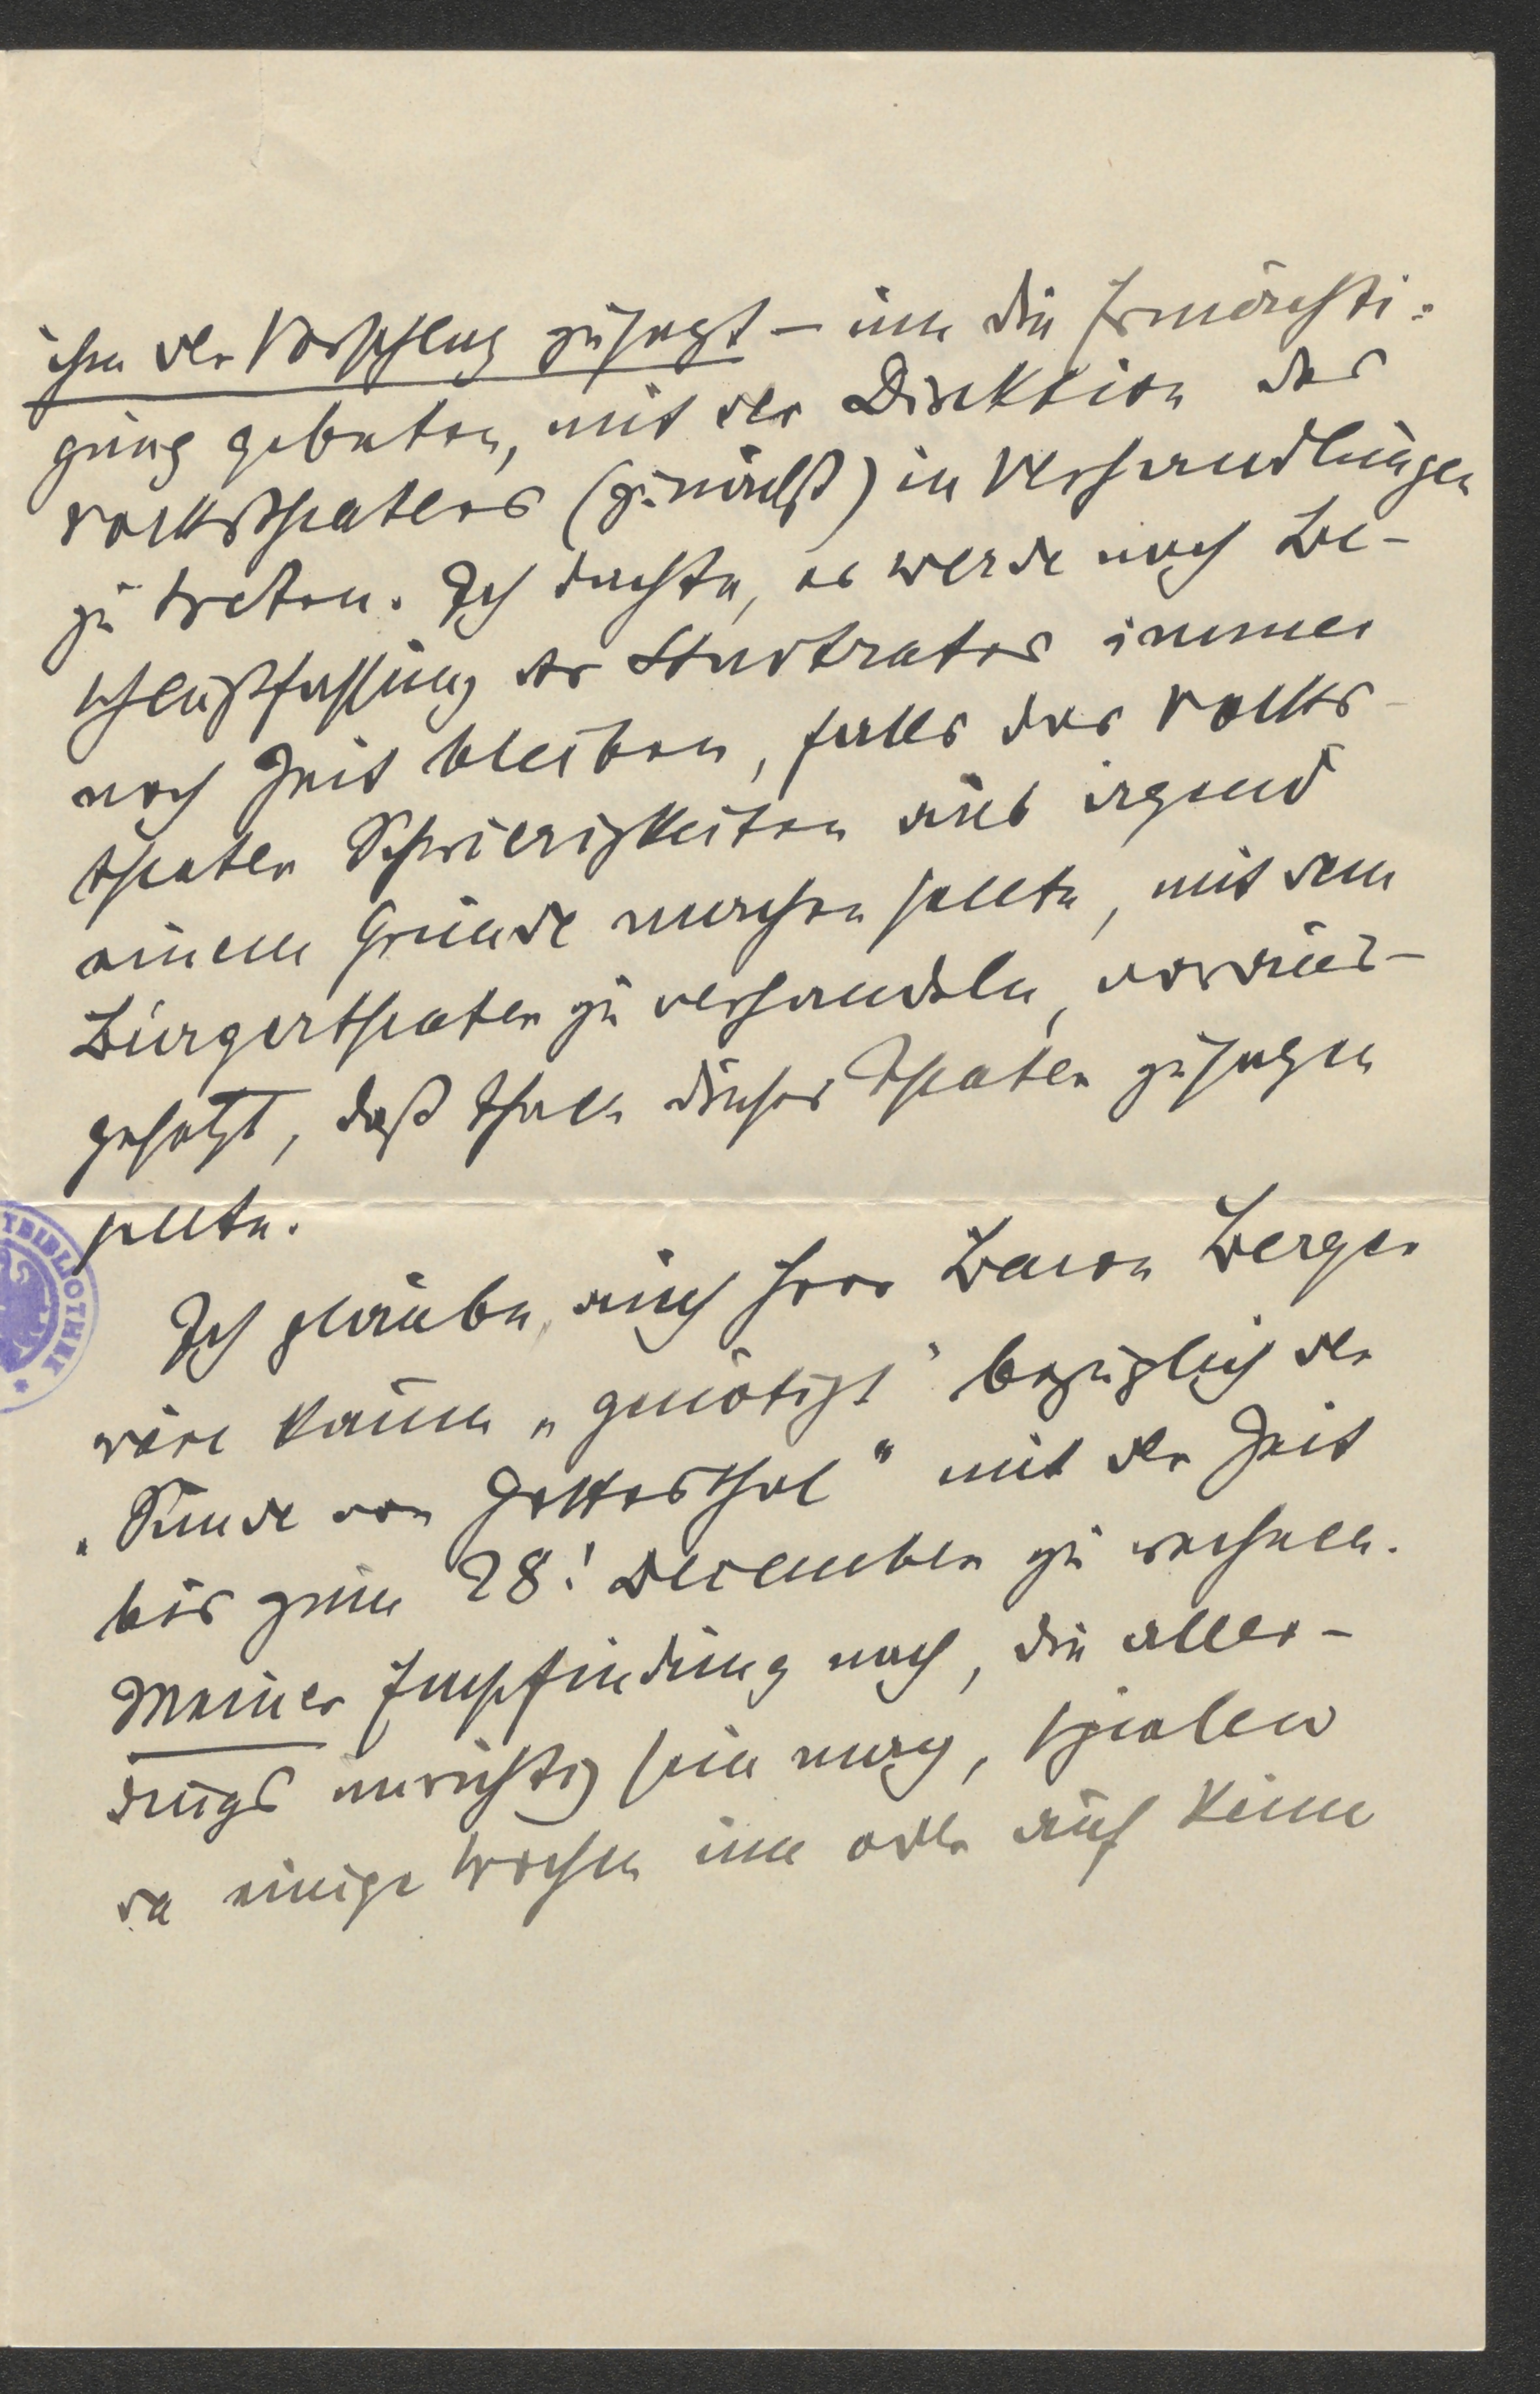 ihm der Vorschlag zusagt – um die Ermächti-
gung gebeten, mit der Direktion des
Volkstheaters (zunächst) in Verhandlungen
zu treten. Ich dachte, es werde nach Be-
schlußfassung des Stadtrates immer
noch Zeit bleiben, falls das Volks-
theater Schwierigkeiten aus irgend
einem Grunde machen sollte, mit dem
Bürgertheater zu verhandeln, voraus-
gesetzt, daß Ihnen dieses Theater zusagen
sollte.
Ich glaube, auch Herr Baron Berger
wäre kaum „genötigt" bezüglich der
„Sünde von" mit der Zeit
bis zum 28! December zu rechnen.
Meiner Empfindung nach, die aller-
dings unrichtig sein mag, spielen
da einige Wochen um oder auf keine
TBIBLIOTHEK